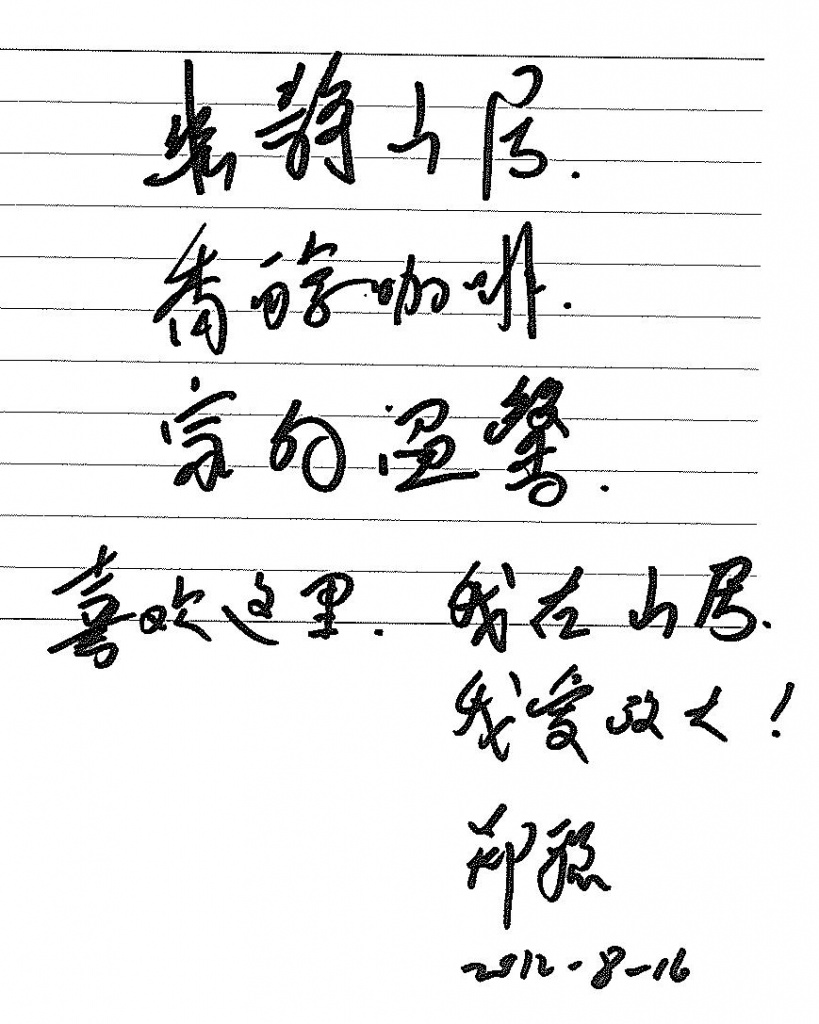 静山居.
香醇咖啡.
家的温馨.
喜欢这里. 我在山居.
我爱政大!
郑稳
2012-8-16